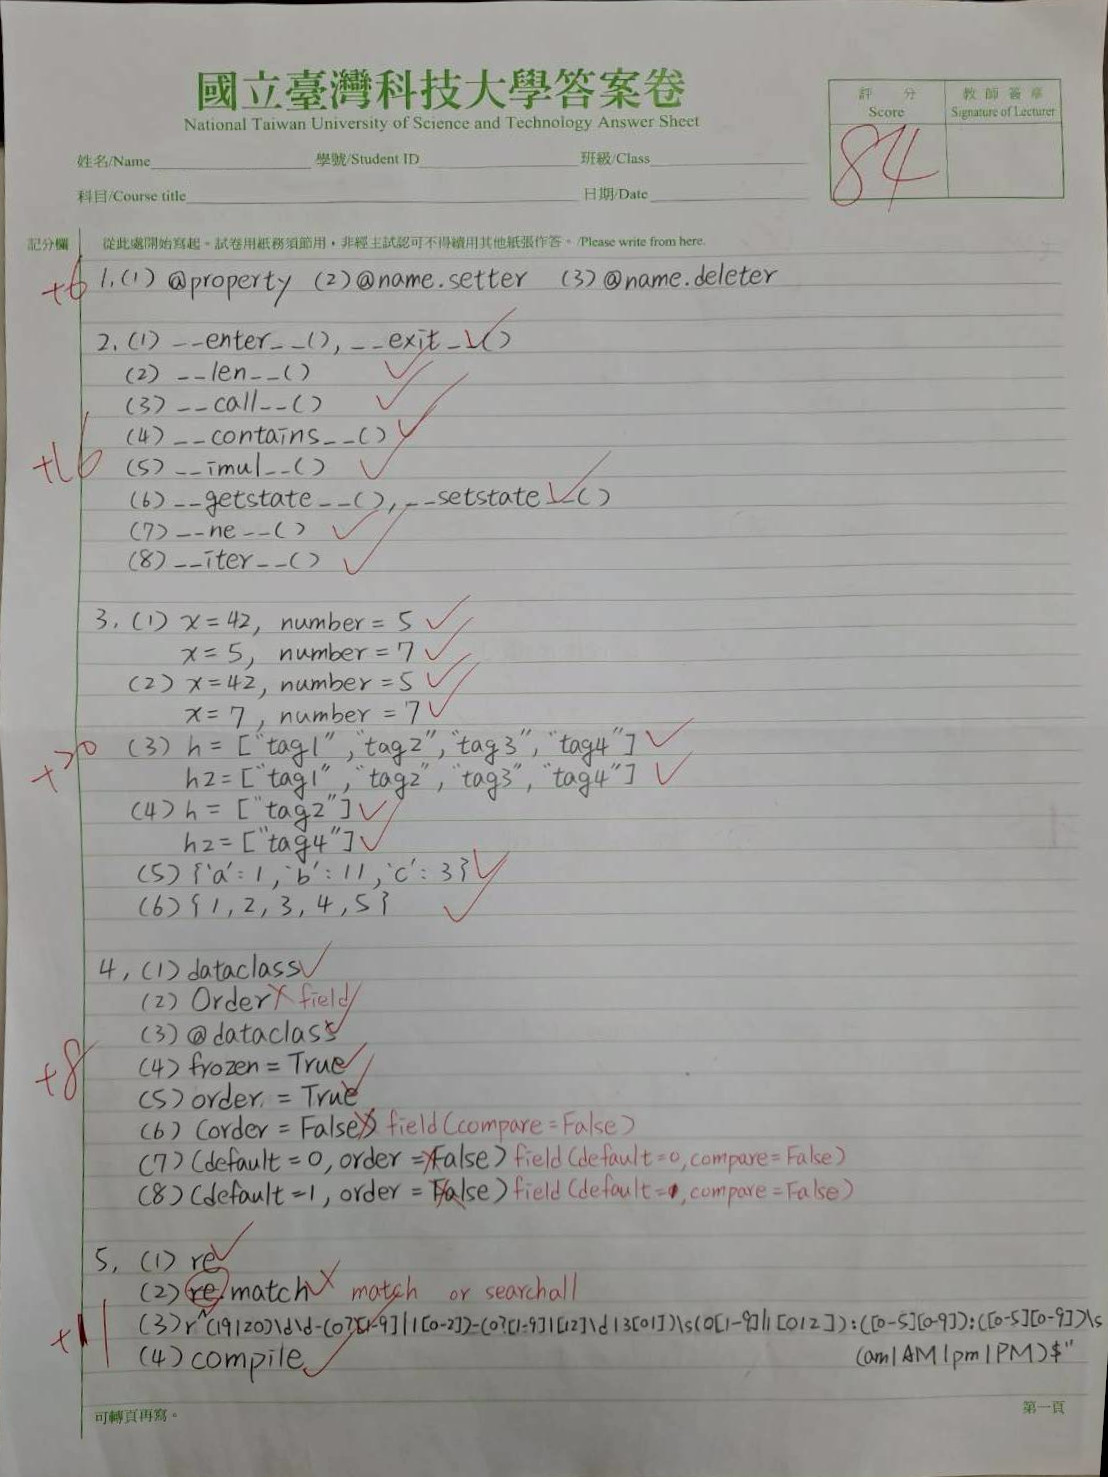 國立臺灣科技大學答案卷
National Taiwan University of Science and Technology Answer Sheet
評 分 教師簽章
Score Signature of Lecturer
84
姓名/Name 學號/Student ID 班級/Class
科目/Course title 日期/Date
記分欄 從此處開始寫起。試卷用紙務須節用,非經主試認可不得續用其他紙張作答。/Please write from here.
+6 1.(1) @property (2)@name.setter (3)@name.deleter
2.(1) __enter__(), __exit__()
(2) __len__()
(3) __call__()
(4) __contains__()
+16 (5) __imul__()
(6) __getstate__(), __setstate__()
(7) __ne__()
(8) __iter__()
3.(1) x=42, number=5
x=5, number=7
(2) x=42, number=5
x=7, number=7
(3) h = ["tag1","tag2","tag3","tag4"]
h2=["tag1","tag2","tag3","tag4"]
(4) h = ["tag2"]
h2=["tag4"]
(5) {'a':1,'b':11,'c':3}
(6) {1,2,3,4,5}
4,(1) dataclass
(2) Order field
(3) @dataclass
+8 (4) frozen=True
(5) order = True
(6) (order=False) field(compare=False)
(7) (default=0, order=False) field(default=0,compare=False)
(8) (default=1, order=False) field(default=,compare=False)
5, (1) re
(2) re.match match or searchall
(3) r"^(19|20)\d\d-(0?[1-9]|1[0-2])-(0?[1-9]|[12]\d|3[01])\s(0[1-9]|1[012]):([0-5][0-9]):([0-5][0-9])\s
(4) compile (am|AM|pm|PM)$"
可轉頁再寫。 第一頁